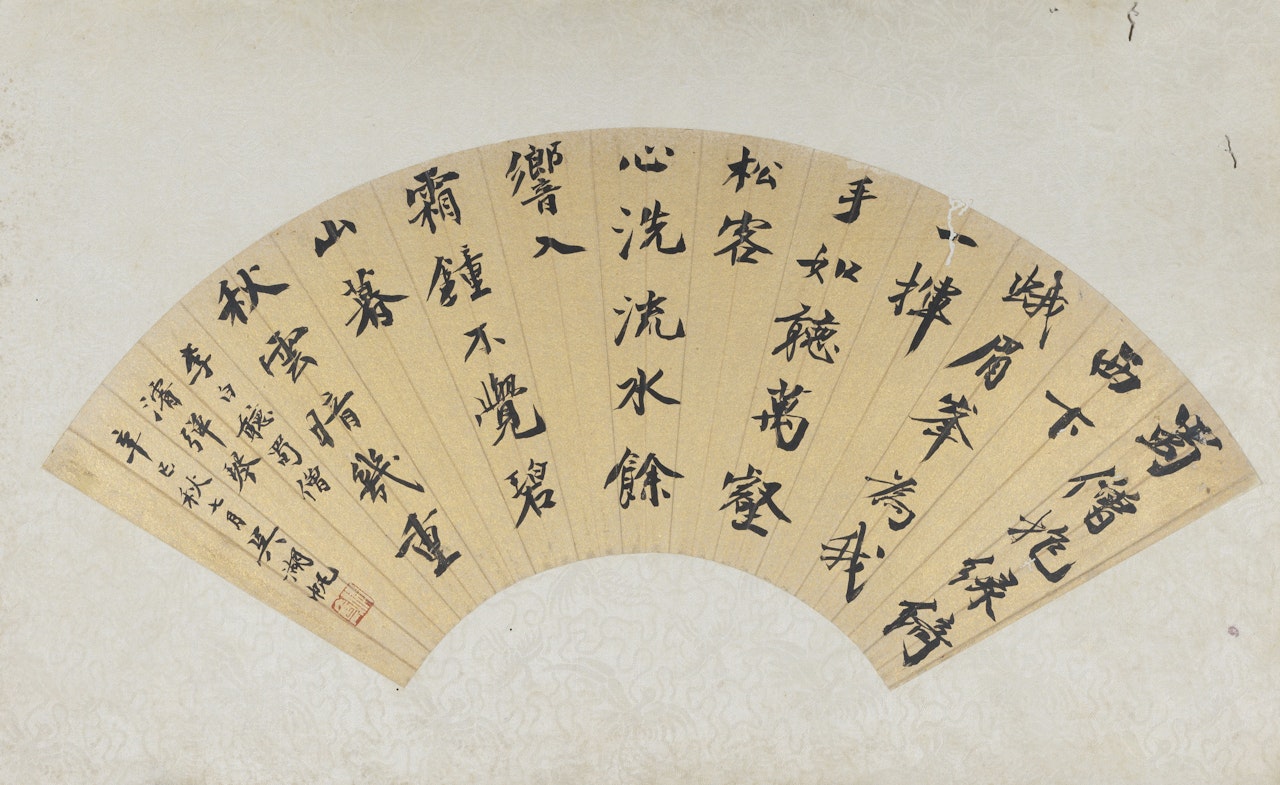 蜀僧抱緑綺
西下
峨眉峯為我
一揮
手如聽萬壑
松客
心洗流水餘
響入
霜鐘不覺碧
山暮
秋雲暗幾重
李白聽蜀僧
濬彈琴
辛巳秋七月吳湖帆